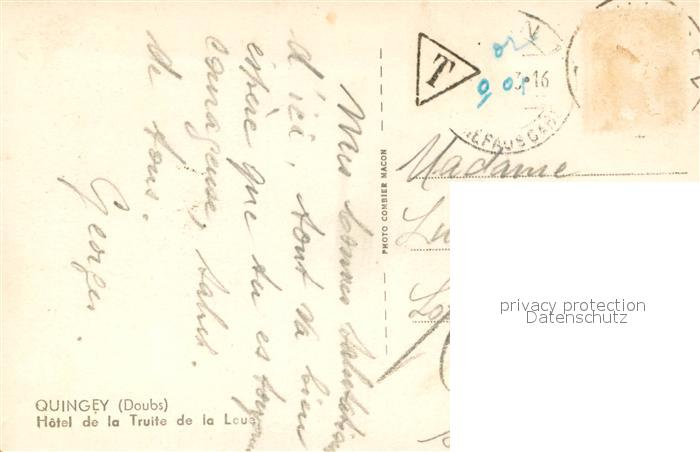 Mes bonnes salutations
d'ici, tout va bien
espère que tu es toujours
courageuse, salut
de tous.
Georges.
QUINGEY (Doubs)
Hôtel de la Truite de la Loue
PHOTO COMBIER MACON
T
Madame
privacy protection
Datenschutz